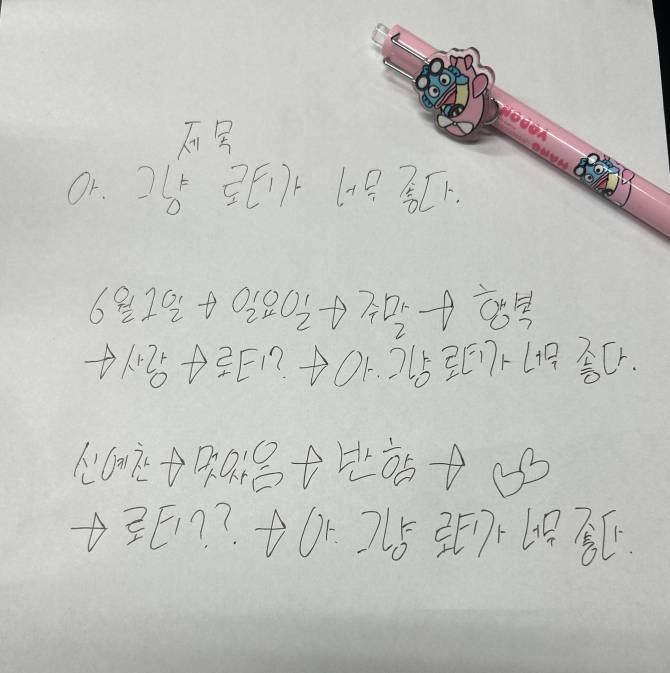 제목
아. 그냥 로티가 너무 좋다.
6월 2일 → 일요일 → 주말 → 행복
→ 사랑 → 로티? → 아. 그냥 로티가 너무 좋다.
신예찬 → 멋있음 → 반함 → ♡♡
→ 로티?? → 아. 그냥 로티가 너무 좋다.
HANG YODON